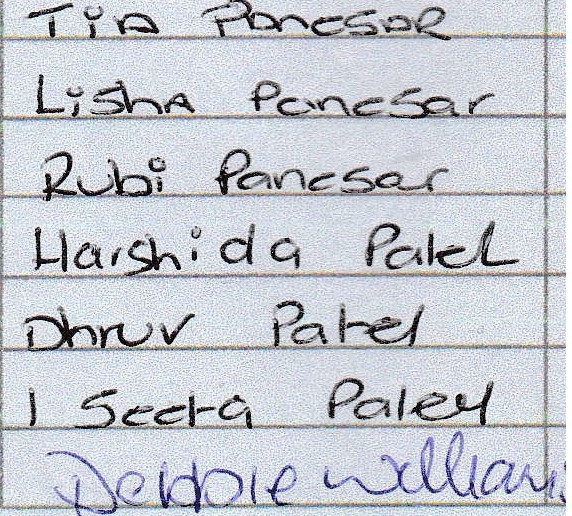 Tia Pancsar
Lisha Pancsar
Rubi Pancsar
Harshida Patel
Dhruv Patel
I Seeta Patel
Debbie Williams